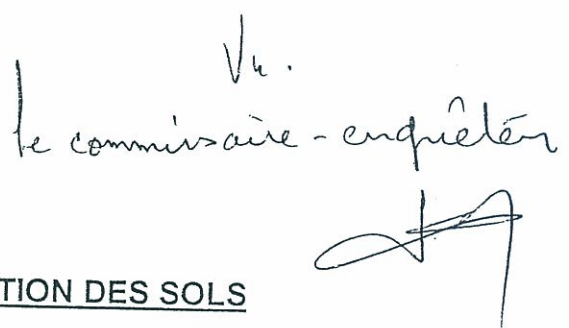 Vu.
le commissaire-enquêteur
TION DES SOLS